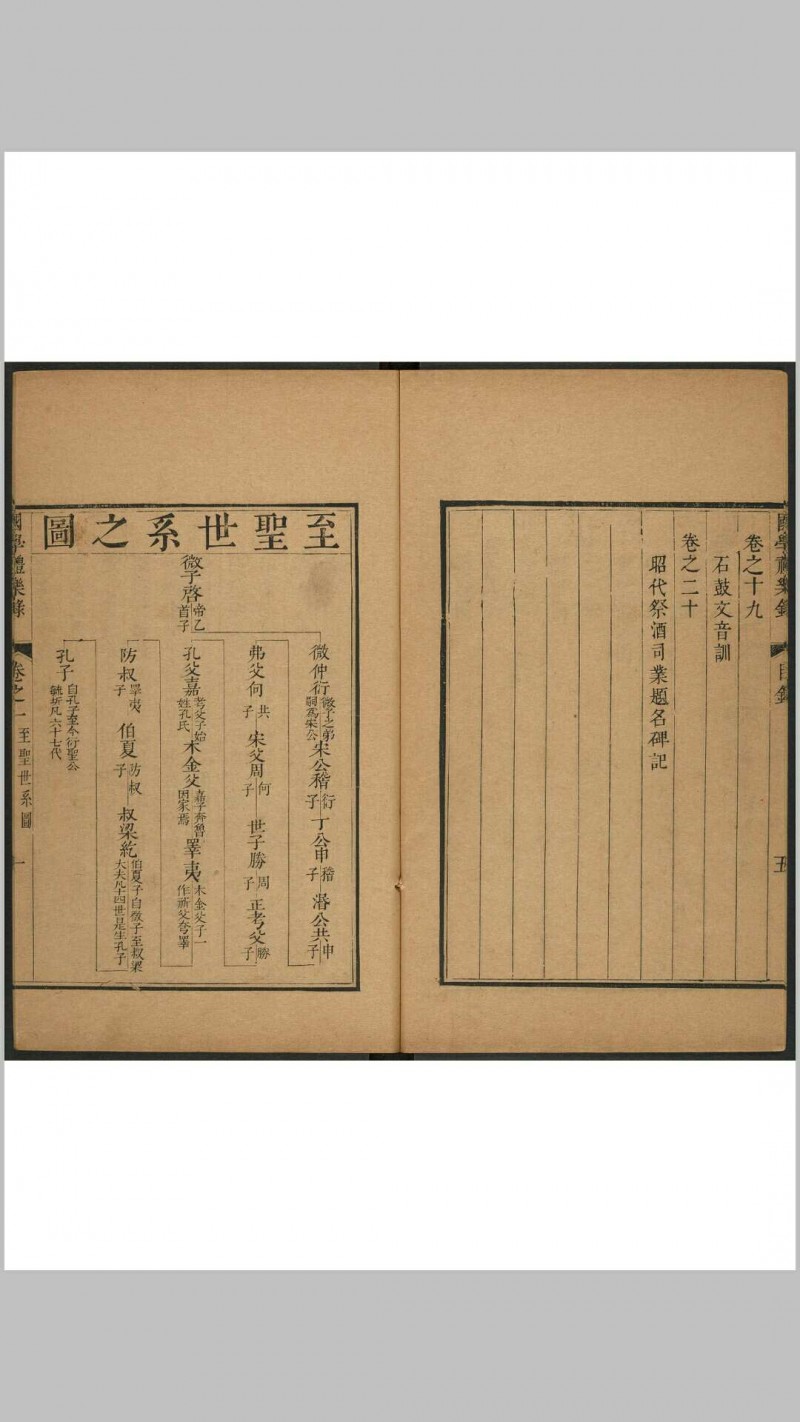 國學禮樂錄 目錄 五
卷之十九
石鼓文音訓
卷之二十
昭代祭酒司業題名碑記
至聖世系之圖
微子啓 帝乙首子
微仲衍 微子之弟嗣爲宋公 宋公稽 衍子 丁公申 稽子 湣公共 申子
弗父何 共子 宋父周 何子 世子勝 周子 正考父 勝子
孔父嘉 考父子始姓孔氏 木金父 嘉子奔魯因家焉 睪夷 木金父子一作祈父夸睪
防叔 睪夷子 伯夏 防叔子 叔梁紇 伯夏子自微子至叔梁大夫凡十四世是生孔子
孔子 自孔子至今衍聖公毓圻凡六十七代
國學禮樂錄 卷之一 至聖世系圖 一